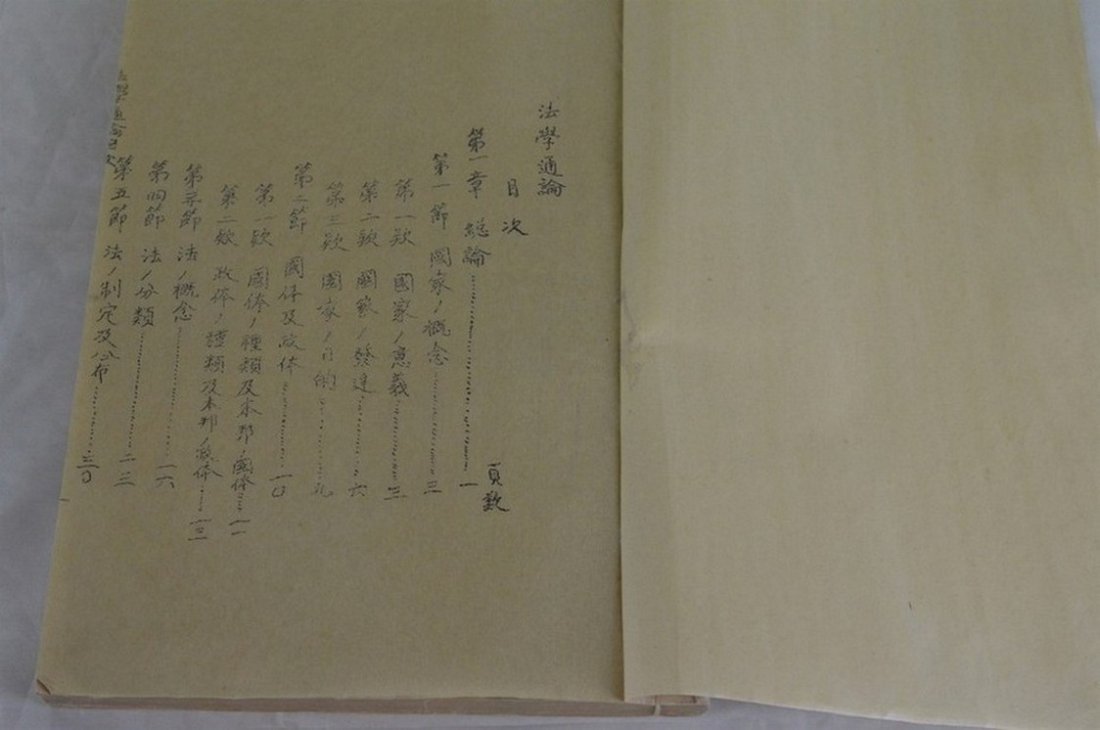 法學通論
目次
頁数
第一章 総論 一
第一節 國家ノ概念 三
第一款 國家ノ意義 三
第二款 國家ノ發達 六
第三款 國家ノ目的 九
第二節 國体及政体 一〇
第一款 國体ノ種類及本邦ノ國体 一一
第二款 政体ノ種類及本邦ノ政体 一三
第三節 法ノ概念 一六
第四節 法ノ分類 二三
第五節 法ノ制定及公布 三〇
法學通論目次